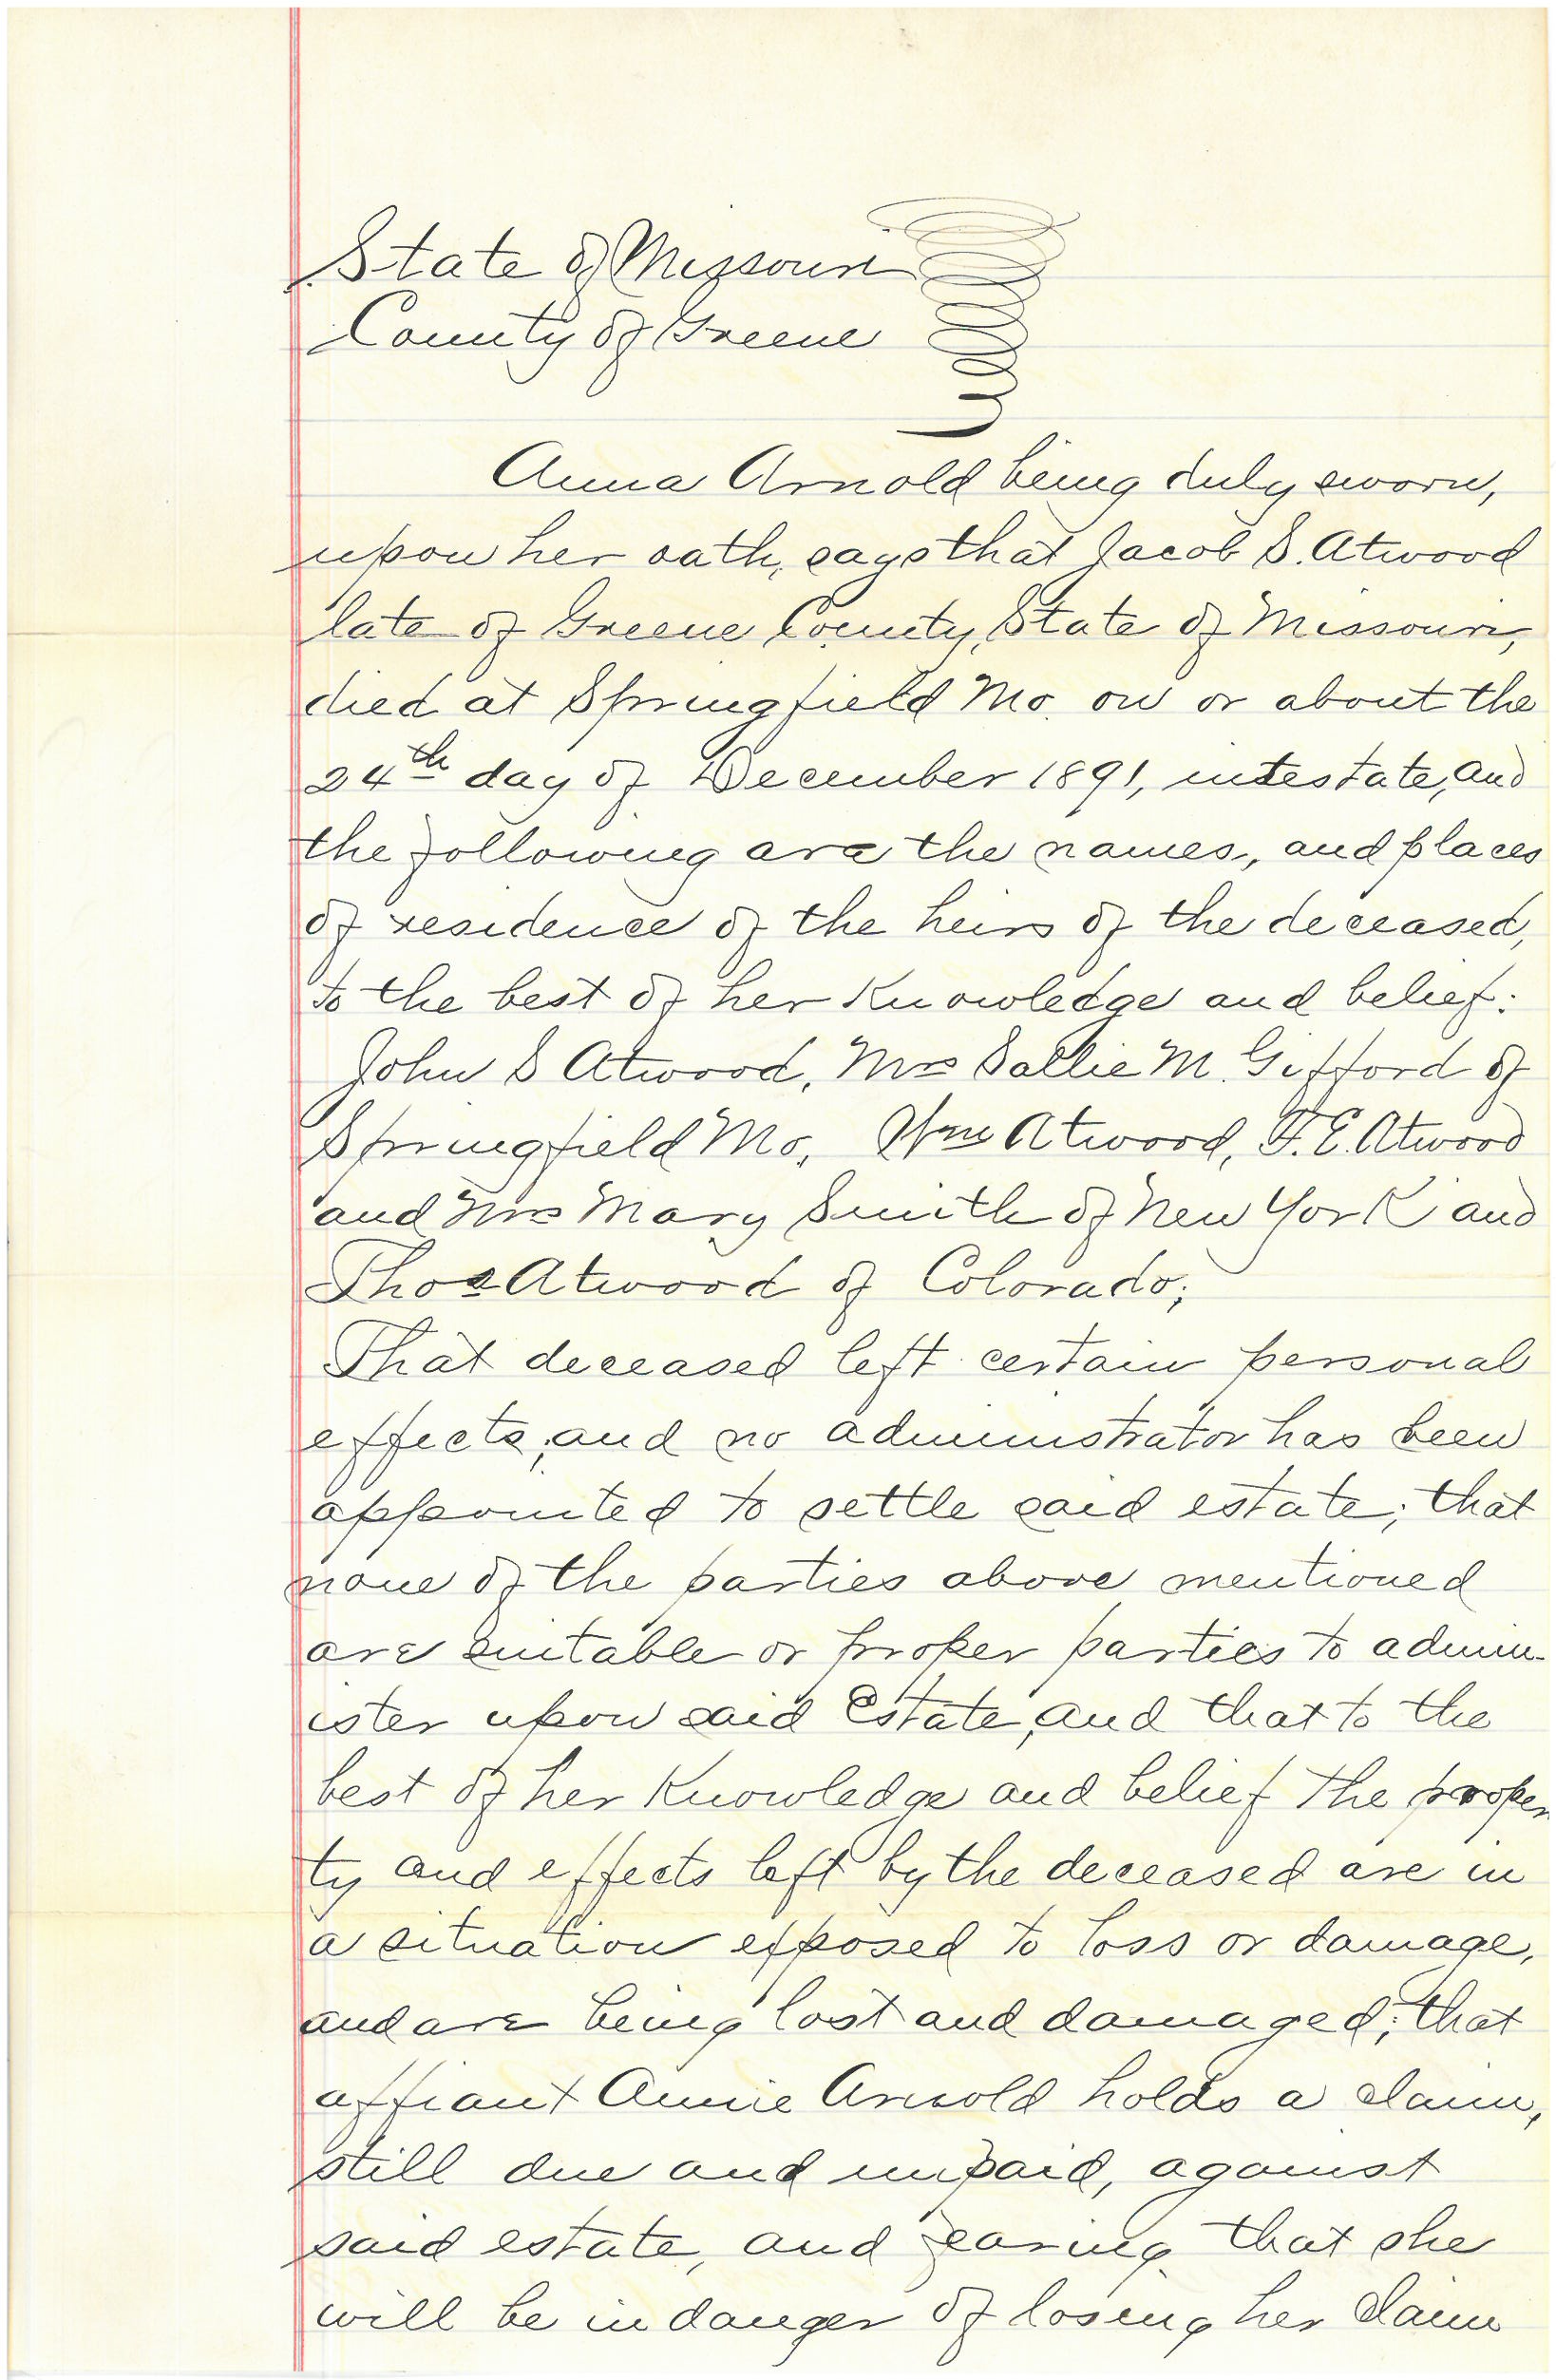 State of Missouri
County of Greene
Anna Arnold being duly sworn,
upon her oath, says that Jacob S. Atwood
late of Greene County, State of Missouri,
died at Springfield Mo. on or about the
24th day of December 1891, intestate, and
the following are the names, and places
of residence of the heirs of the deceased,
to the best of her Knowledge and belief:
John S Atwood, Mrs Sallie M. Gifford of
Springfield Mo, Wm Atwood, F. E. Atwood
and Mrs Mary Smith of New York and
Thos Atwood of Colorado;
That deceased left certain personal
effects; and no administrator has been
appointed to settle said estate; that
none of the parties above mentioned
are suitable or proper parties to admin-
ister upon said Estate, and that to the
best of her Knowledge and belief the proper
ty and effects left by the deceased are in
a situation exposed to loss or damage,
and are being lost and damaged; that
affiant Annie Arnold holds a claim,
still due and unpaid, against
said estate, and fearing that she
will be in danger of losing her claim